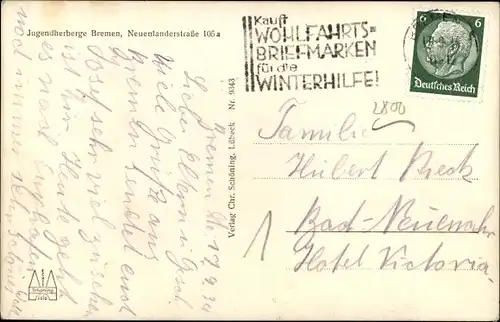 Jugendherberge Bremen, Neuenlanderstraße 105a
Kauft
WOHLFAHRTS=
BRIEFMARKEN
für die
WINTERHILFE!
6 6
Deutsches Reich
2800
Familie
Hubert
Bad-Neuenahr
Hotel Victoria
1
Verlag Chr. Schöning, Lübeck Nr. 9343
Bremen
Liebe Eltern u.
Viele Grüße aus
Bremen sendet euch
Josef. sehr viel zu sehen
ist hier. Heute geht
es nach
noch immer sehr
Schöning